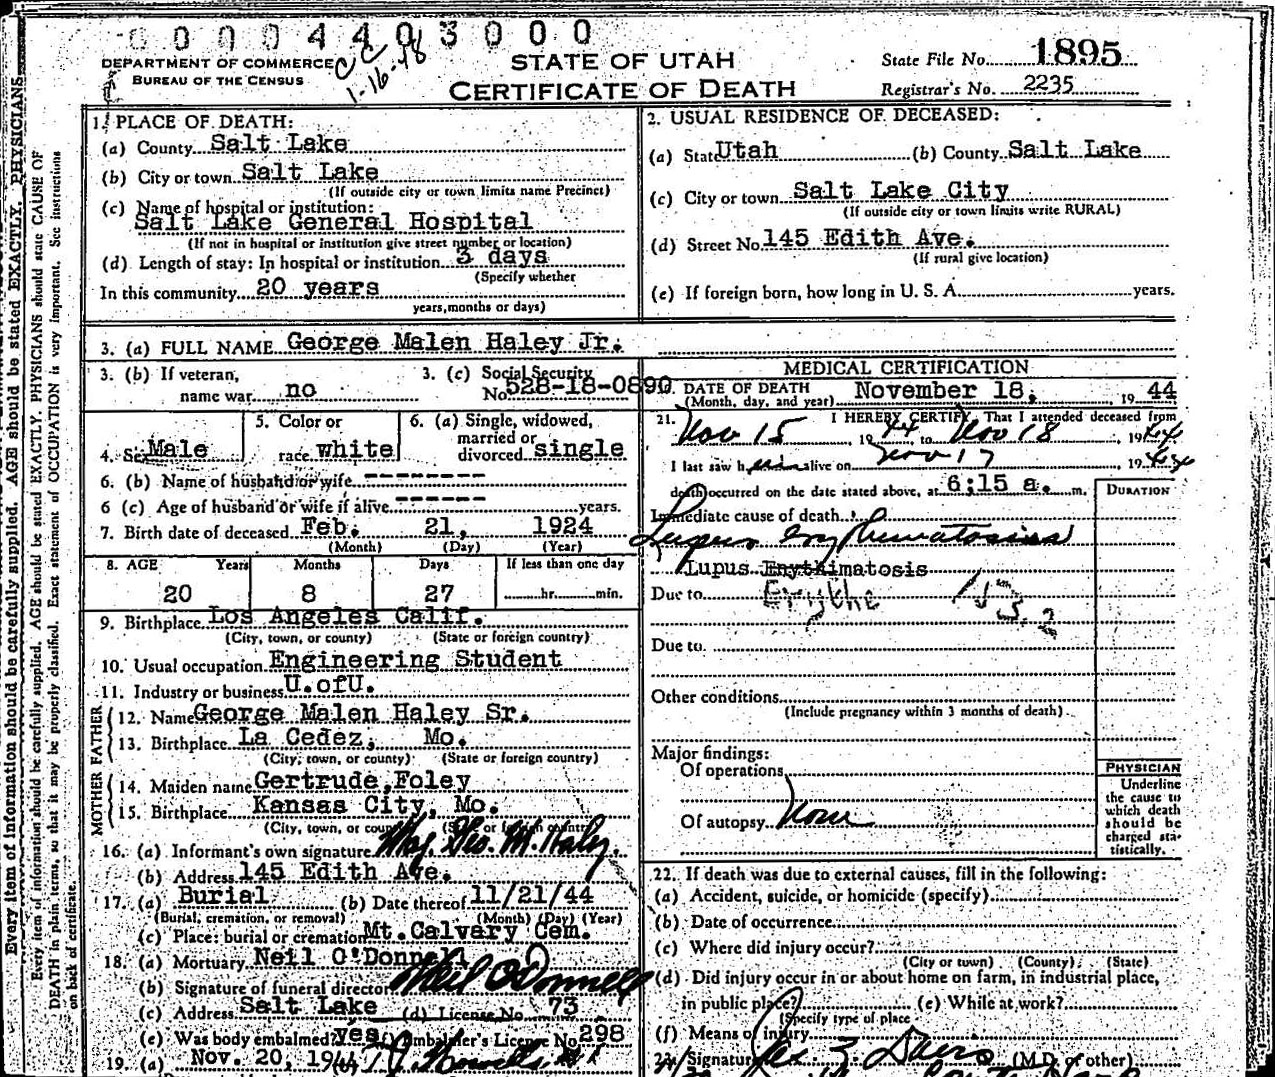 0 0 0 0 4 4 0 3 0 0 0
C C
1-16-48
DEPARTMENT OF COMMERCE
BUREAU OF THE CENSUS
STATE OF UTAH
CERTIFICATE OF DEATH
State File No. 1895
Registrar's No. 2235
Every item of information should be carefully supplied. AGE should be stated EXACTLY. PHYSICIANS
Every item of information should be carefully supplied. AGE should be stated EXACTLY. PHYSICIANS should state CAUSE OF
DEATH in plain terms, so that it may be properly classified. Exact statement of OCCUPATION is very important. See instructions
on back of certificate.
1. PLACE OF DEATH:
(a) County Salt Lake
(b) City or town Salt Lake
(If outside city or town limits name Precinct)
(c) Name of hospital or institution:
Salt Lake General Hospital
(If not in hospital or institution give street number or location)
(d) Length of stay: In hospital or institution 3 days
(Specify whether
In this community 20 years
years, months or days)
2. USUAL RESIDENCE OF DECEASED:
(a) State Utah (b) County Salt Lake
(c) City or town Salt Lake City
(If outside city or town limits write RURAL)
(d) Street No. 145 Edith Ave.
(If rural give location)
(e) If foreign born, how long in U. S. A. years.
3. (a) FULL NAME George Malen Haley Jr.
3. (b) If veteran, name war no
3. (c) Social Security No. 528-18-0890
4. Sex Male
5. Color or race white
6. (a) Single, widowed, married or divorced single
6. (b) Name of husband or wife
6 (c) Age of husband or wife if alive years.
7. Birth date of deceased Feb. 21, 1924
(Month) (Day) (Year)
8. AGE Years Months Days If less than one day
20 8 27 hr. min.
9. Birthplace Los Angeles Calif.
(City, town, or county) (State or foreign country)
10. Usual occupation Engineering Student
11. Industry or business U.ofU.
FATHER
12. Name George Malen Haley Sr.
13. Birthplace La Cedez, Mo.
(City, town, or county) (State or foreign country)
MOTHER
14. Maiden name Gertrude Foley
15. Birthplace Kansas City, Mo.
(City, town, or county) (State or foreign country)
16. (a) Informant's own signature Geo. M. Haley.
(b) Address 145 Edith Ave.
17. (a) Burial (b) Date thereof 11/21/44
(Burial, cremation, or removal) (Month) (Day) (Year)
(c) Place: burial or cremation Mt.Calvary Cem.
18. (a) Mortuary Neil O'Donnell
(b) Signature of funeral director Neil O'Donnell
(c) Address Salt Lake (d) License No. 73
(e) Was body embalmed? yes (f) Embalmer's License No. 298
19. (a) Nov. 20, 1944
MEDICAL CERTIFICATION
20. DATE OF DEATH November 18, 19 44
(Month, day, and year)
21. I HEREBY CERTIFY, That I attended deceased from
Nov 15, 19 44 to Nov 18, 19 44
I last saw him alive on Nov 17, 19 44
death occurred on the date stated above, at 6:15 a. m.
DURATION
Immediate cause of death
Lupus Erythematosis
Lupus Enythimatosis
Due to Erythe 153.2
Due to
Other conditions
(Include pregnancy within 3 months of death)
Major findings:
Of operations
Of autopsy None
PHYSICIAN
Underline
the cause to
which death
should be
charged sta-
tistically.
22. If death was due to external causes, fill in the following:
(a) Accident, suicide, or homicide (specify)
(b) Date of occurrence
(c) Where did injury occur?
(City or town) (County) (State)
(d) Did injury occur in or about home on farm, in industrial place,
in public place? (e) While at work?
(Specify type of place
(f) Means of injury
23. Signature (M.D. or other)